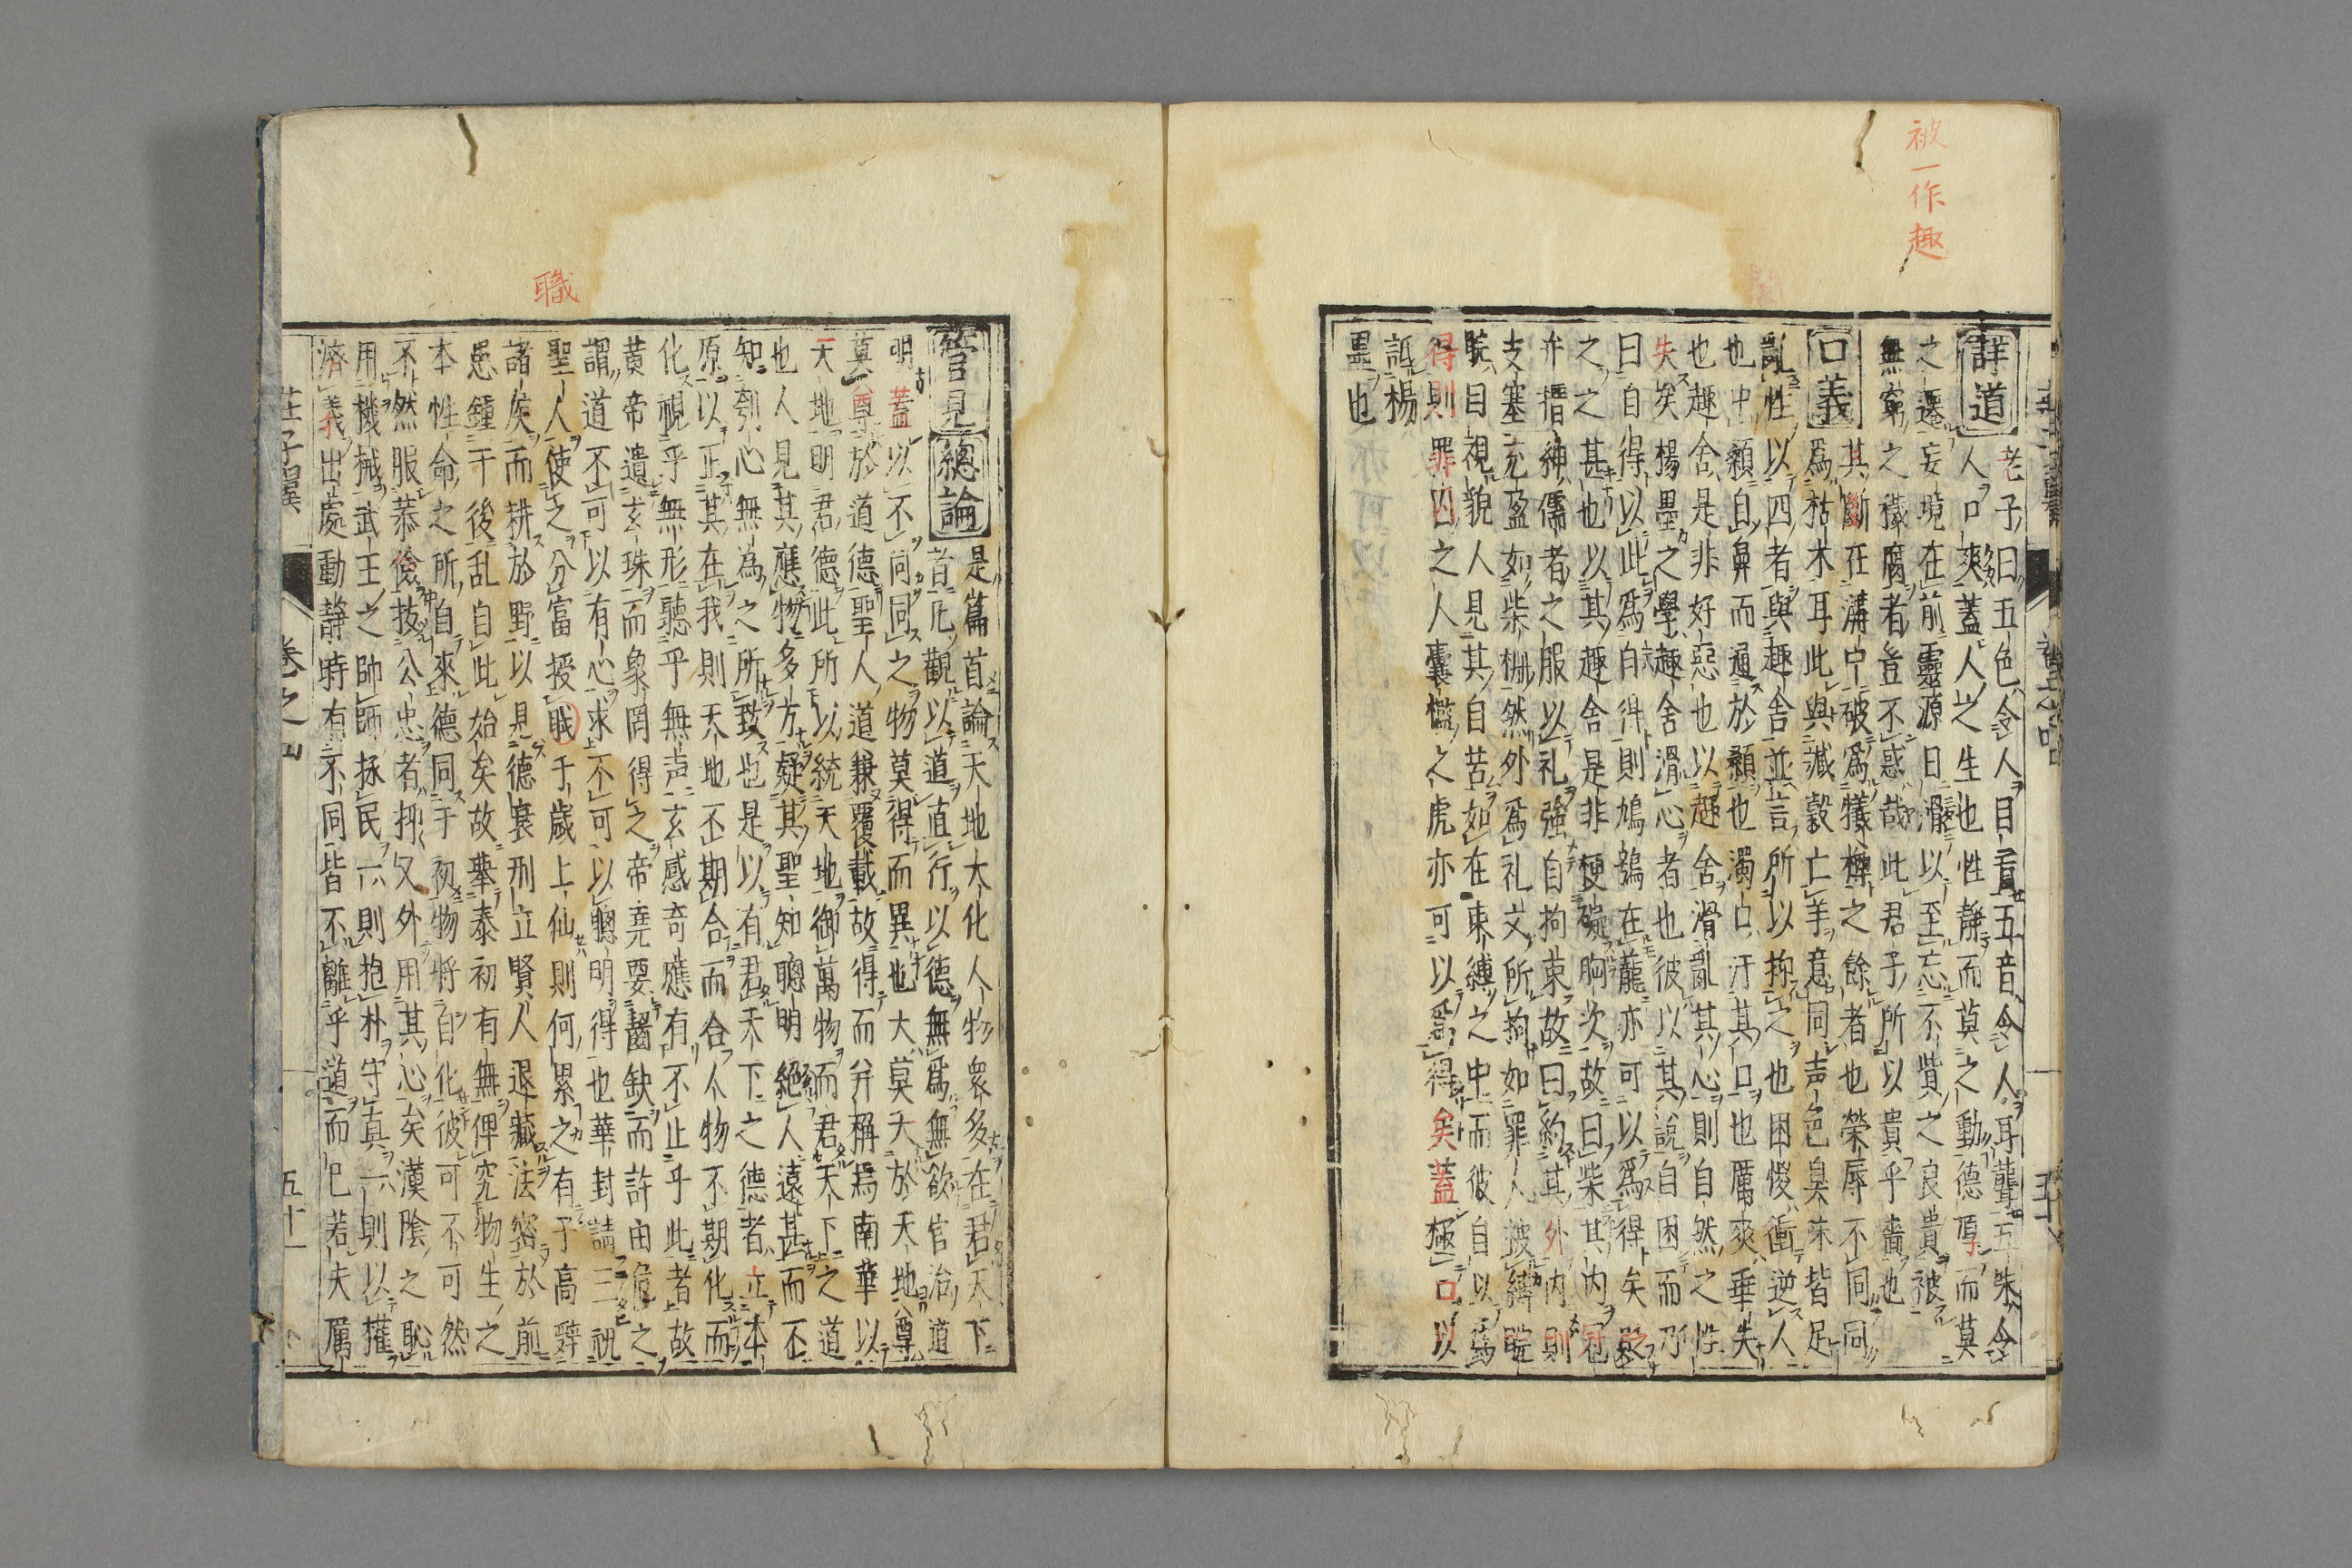 被一作趣
詳道 老子曰五色令人目盲五音令人耳聾五味令
人口爽蓋人之生也性静而莫之動德厚而莫
之遷妄境在前靈源日滑以至忘不貲之良貴被
無窮之穢腐者豈不惑哉此君子所以貴乎嗇也
口義 其斷在溝中破爲犧樽之餘者也榮辱不同同
爲枯木耳此與臧穀亡羊意同声色臭味皆足
亂性以四者與趣舎並言所以抑之也困惾衝逆人
也中顙自鼻而通於顙也濁口汙其口也厲爽乖失
也趣舎是非好惡也以趣舎滑亂其心則自然之性
失矣楊墨之學趣舎滑心者也彼以其説自困而乃
曰自得以此爲自得則鳩鴞在籠亦可以爲得矣
之之甚也以其趣舎是非梗礙胸次故曰柴其内冠
弁搢紳儒者之服以礼強自拘束故曰約其外内則
支塞充盈如柴柵然外爲礼文所拘如罪人被縛睆
睆目視貌人見其自苦如在束縛之中而彼自以爲
得則罪囚之人囊檻之虎亦可以爲得矣蓋極口以
詆楊
墨也
職
管見總論 是篇首論天地大化人物衆多在君天下
音凡觀以道直行以德無爲無欲官治道
明蓋以不同同之物莫得而異也大莫大於天地尊
莫尊於道德聖人道兼覆載故得而并稱焉南華以
天地明君德此所以統天地御萬物而君天下之道
也人見其應物多方疑其聖知聰明絕人遠甚而不
知刳心無為之所致也是以有君天下之德者立本
原以正其在我則天地不期合而合人物不期化而
化視乎無形聽乎無声玄感奇應有不止乎此者故
黄帝遺玄珠而象罔得之帝堯要齧缺而許由危之
謂道不可以有心求不可以聰明得也華封請三祝
聖人使之分富授職于歳上仙則何累之有子高辭
諸侯而耕於野以見德衰刑立賢人退藏法密於前
患鍾于後乱自此始矣故舉泰初有無俾究物生之
本性命之所自來德同于初物將自化彼可不可然
不然服恭儉抜公忠者抑又外用其心矣漢陰之恥
用機械武王之帥師拯民一則抱朴守真一則以權
濟義出處動静時有不同皆不離乎道而已若夫厲
莊子翼 卷之四 五十一